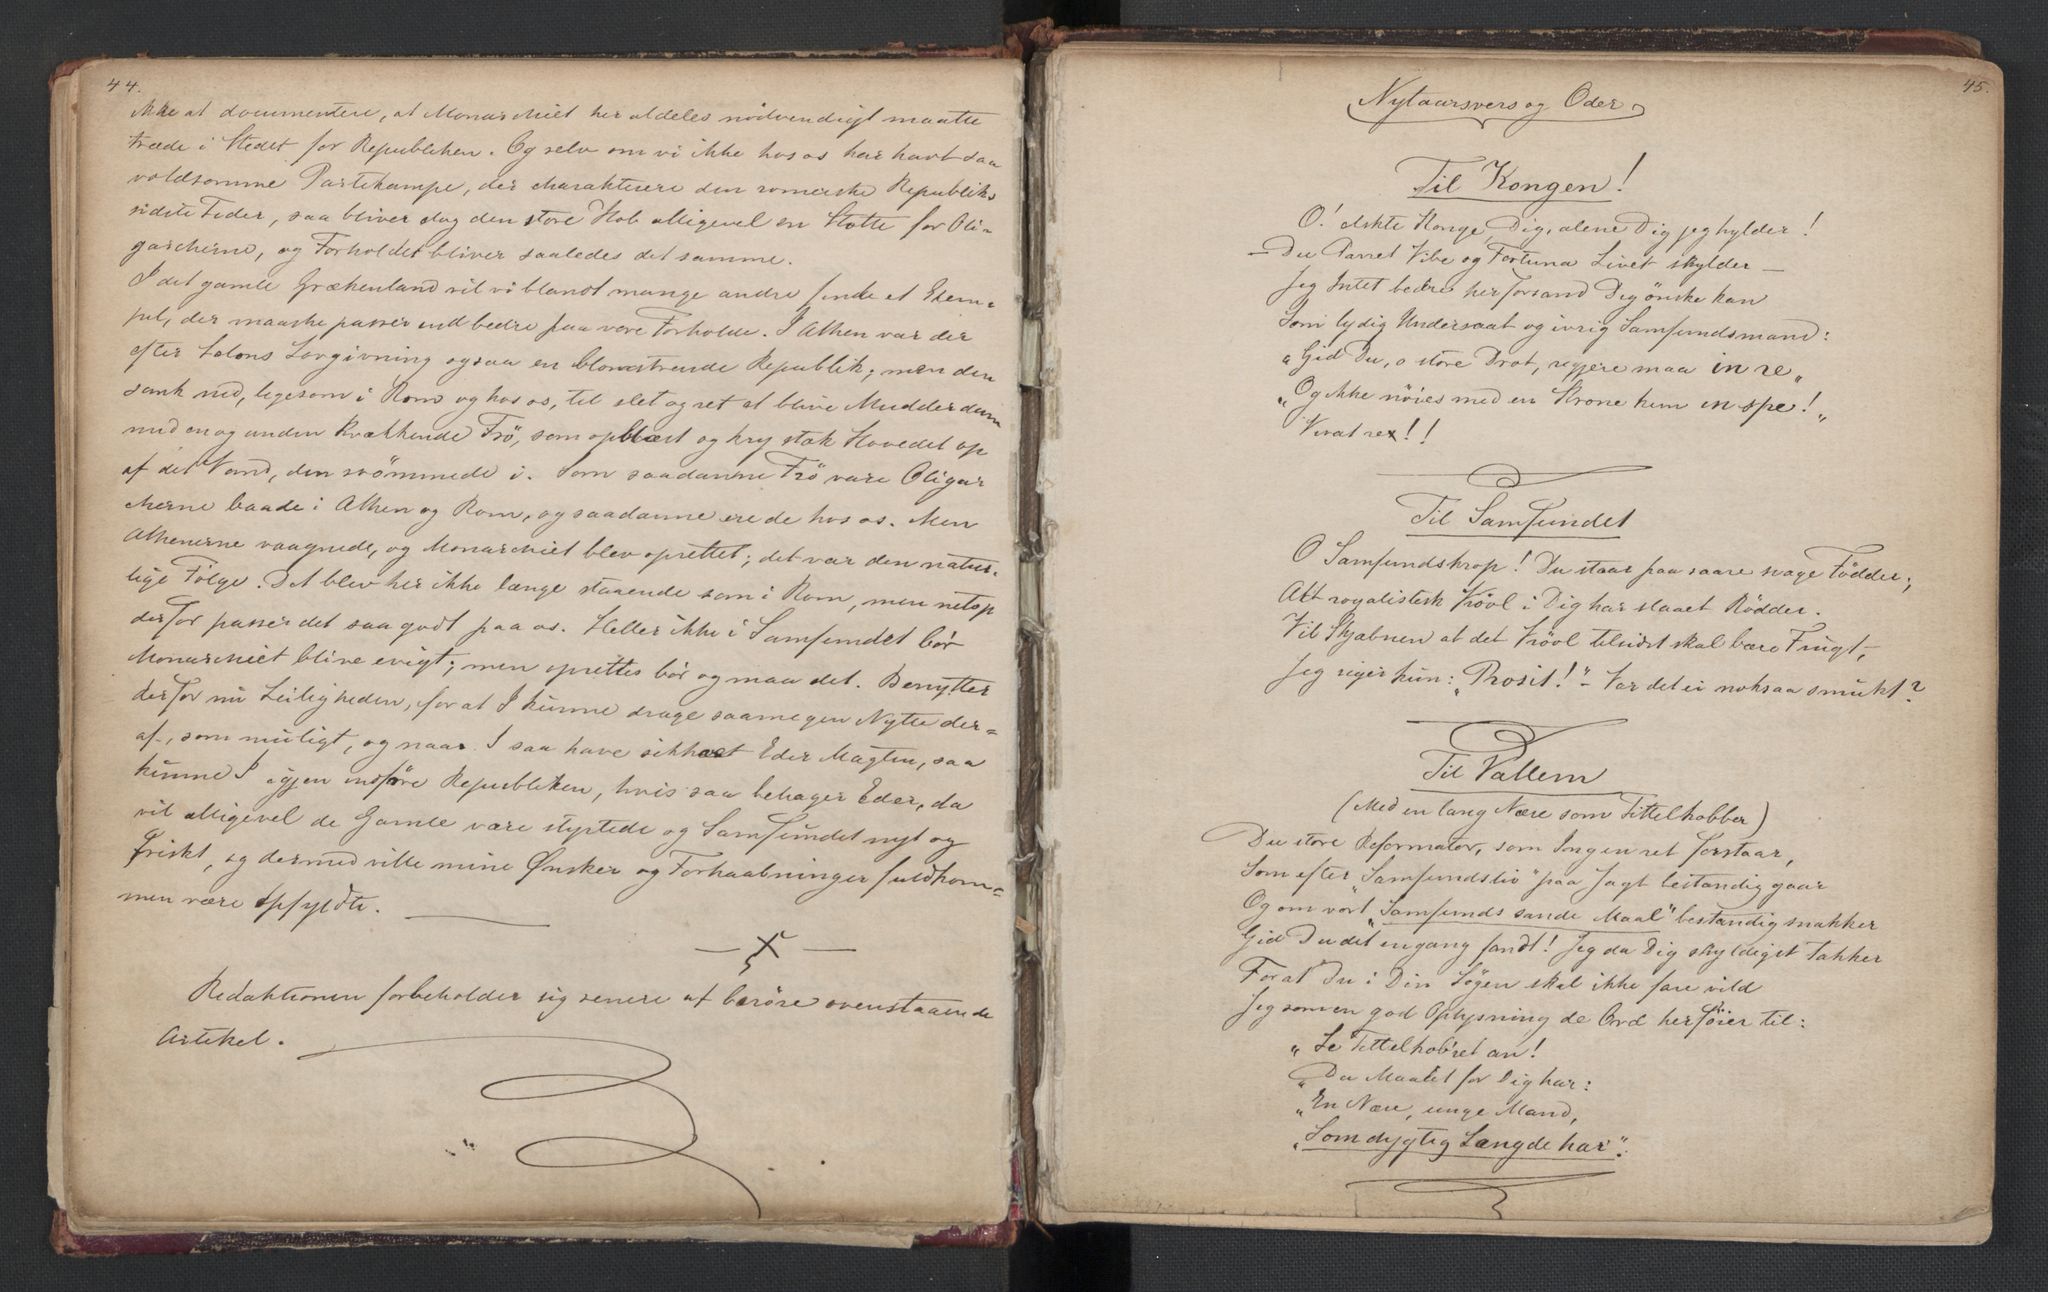 44.
ikke at documentere, at Monarchiet her aldeles nödvendigt maatte
træde i Stedet for Republiken. Og selv om vi ikke hos os har havt saa
voldsomme Partikampe, der charakterisere den romerske Republiks
sidste Tider, saa bliver dog den store Hob alligevel en Stötte for Oli=
garcherne, og Forholdet bliver saaledes det samme.
I det gamle Grækenland vil vi blandt mange andre finde et Exem=
pel, der maaske passer end bedre paa vore Forholde. I Athen var der
efter Solons Lovgivning ogsaa en blomstrende Republik; men den
sank ned, ligesom i Rom og hos os, til slet og ret at blive Mudderdam
med en og anden kvækkende Frö, som opblæst og kry stak Hovedet op
af det Vand, den svömmede i. Som saadanne Frö vare Oligar
cherne baade i Athen og Rom, og saadanne ere de hos os. Men
Athenerne vaagnede, og Monarchiet blev oprettet; det var den natur=
lige Fölge. Det blev her ikke længe staaende som i Rom, men netop
derfor passer det saa godt paa os. Heller ikke i Samfundet bör
Monarchiet blive evigt; men oprettes bör og maa det. Benytter
derfor nu Leiligheden, for at I kunne drage saamegen Nytte der=
af, som muligt, og naar I saa have sikkret Eder Magten, saa
kunne I igjen indföre Republiken, hvis saa behager Eder, da
vil alligevel de Gamle være styrtede og Samfundet nyt og
friskt, og dermed ville mine Ønsker og Forhaabninger fuldkom=
men være opfyldte.
Redaktionen forbeholder sig senere at beröre ovenstaaende
Artikel.
45.
Nytaarsvers og Oder
Til Kongen!
O! elskte Konge, Dig, alene Dig jeg hylder!
— Du Parret Vibe og Fortuna Livet skylder —
Jeg Intet bedre her forsand Dig önske kan
Som lydig Undersaat og ivrig Samfundsmand:
"Gid Du, o store Drot, regjere maa in re"
"Og ikke nöies med en Krone kun in spe!"
Vivat rex!!
Til Samfundet
O Samfundskrop! Du staar paa saare svage Födder;
Alt royalistisk Kröol i Dig har slaaet Rödder.
Vil Skjæbnen at det Kröol tilsidst skal bære Frugt,
Jeg siger kun: "Prosit!" – Var det ei noksaa smukt?
Til Pallem
(Med en lang Næse som Tittelkobber)
Du store Reformator, som Ingen ret forstaar,
Som efter "Samfundsliv" paa Jagt bestandig gaar
Og om vort "Samfunds sande Maal" bestandig snakker
Gid Du det engang fandt! Jeg da Dig skyldigst takker
For at Du i Din Sögen skal ikke fare vild
Jeg som en god Oplysning de Ord her föier til:
"Se Tittelkob'ret an!
"Du Maalet for Dig har:
"En Næse, unge Mand,
"Som dygtig Længde har".